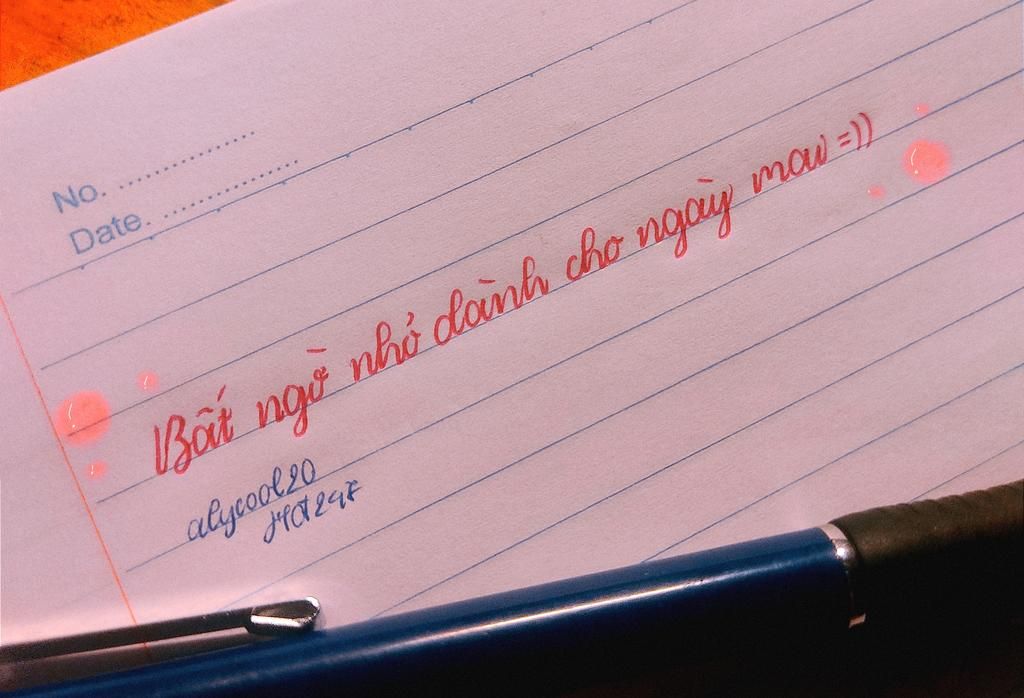 No. ....................
Date. ....................
Bất ngờ nhỏ dành cho ngày mai =))
alycool20
HOT247